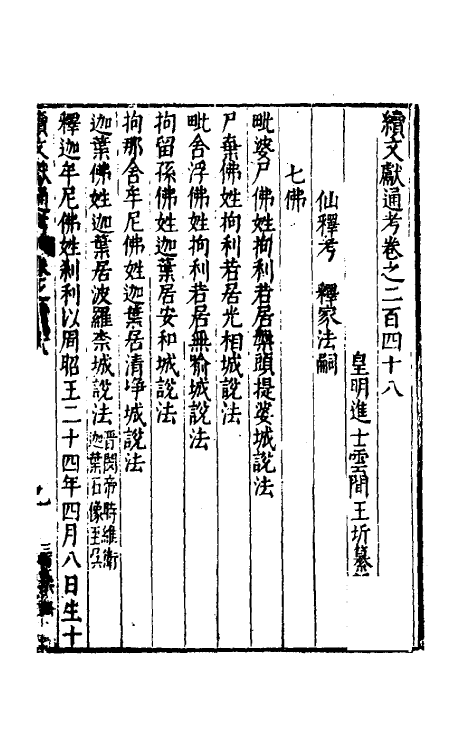 續文獻通考卷之二百四十八
皇明進士雲間王圻纂
仙釋考 釋家法嗣
七佛
毗婆尸佛姓拘利若居槃頭提婆城說法
尸棄佛姓拘利若居光相城說法
毗舍浮佛姓拘利若居無喻城說法
拘留孫佛姓迦葉居安和城說法
拘那舍牟尼佛姓迦葉居清凈城說法
迦葉佛姓迦葉居波羅柰城說法晋閔帝時維衛迦葉石像至吳
釋迦牟尼佛姓剎利以周昭王二十四年四月八日生十
續文獻通考